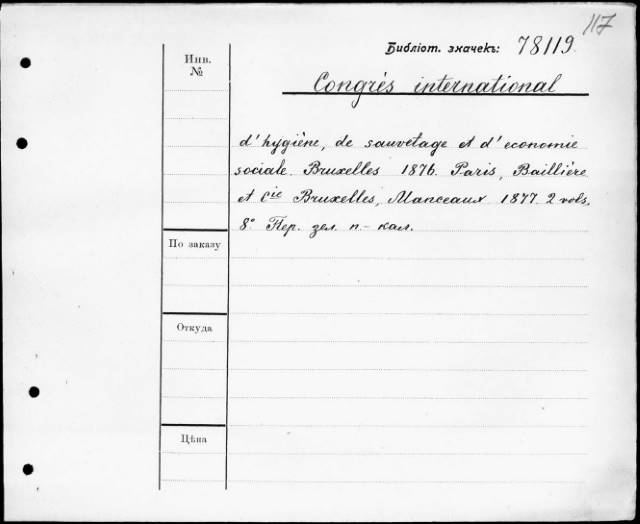 117
Библіот. значекъ: 78119.
Инв.
№
Congrès international
d'hygiène, de sauvetage et d'economie
sociale. Bruxelles 1876. Paris, Baillière
et Cie Bruxelles, Manceaux 1877. 2 vols.
8° Пер. зел. п.- кал.
По заказу
Откуда
Цѣна